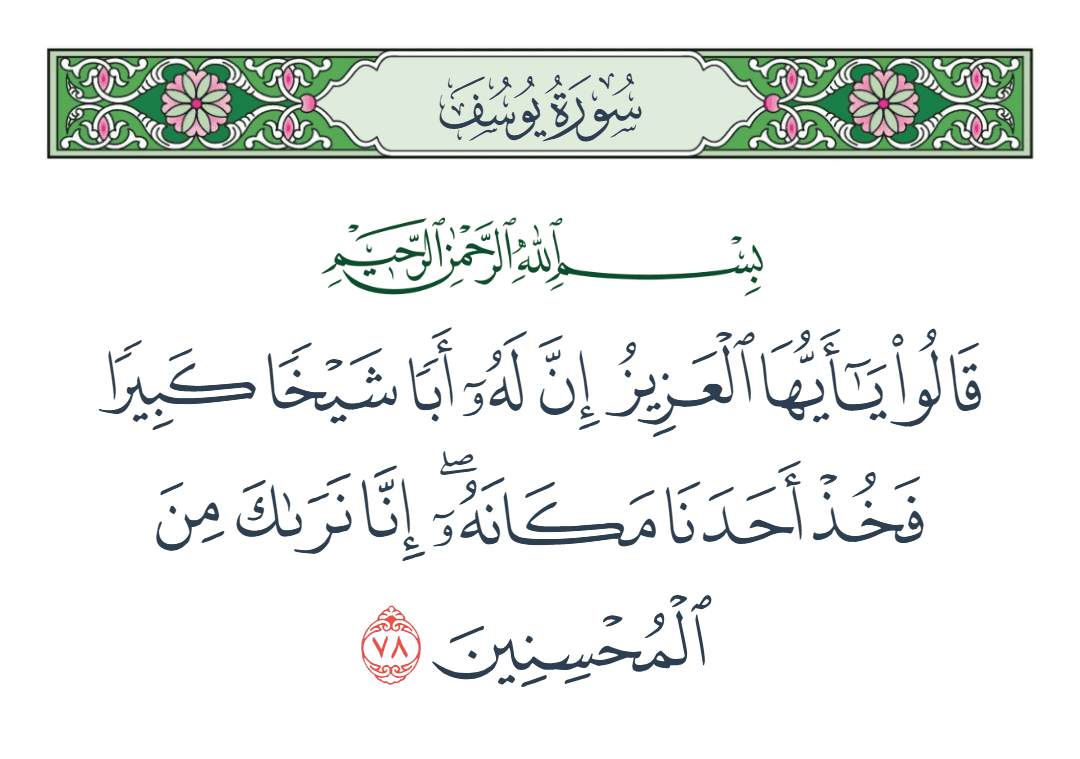 سُورَةُ يُوسُفَ
بِسْمِ ٱللَّهِ ٱلرَّحْمَٰنِ ٱلرَّحِيمِ
قَالُوا۟ يَـٰٓأَيُّهَا ٱلْعَزِيزُ إِنَّ لَهُۥٓ أَبًا شَيْخًا كَبِيرًا
فَخُذْ أَحَدَنَا مَكَانَهُۥٓ ۖ إِنَّا نَرَىٰكَ مِنَ
ٱلْمُحْسِنِينَ ٧٨